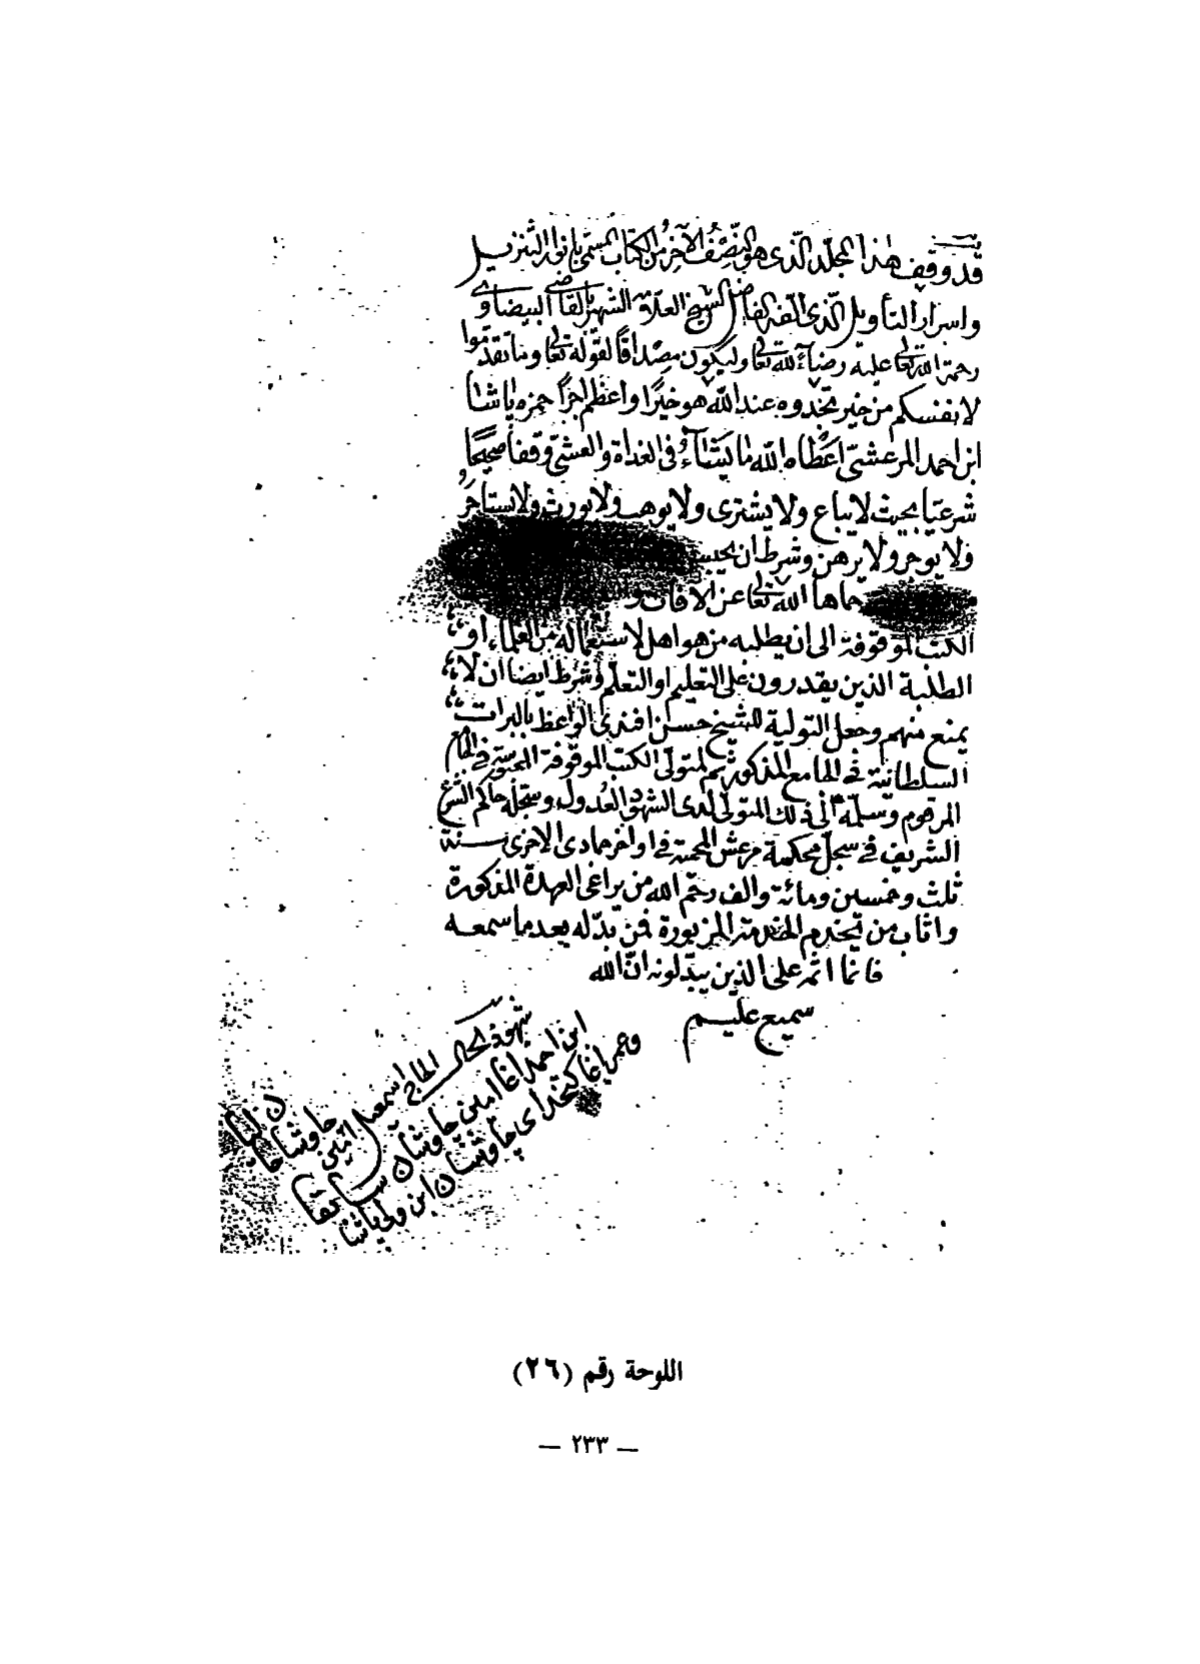 قد وقف هذا المجلّد الّذى هو النّصف الآخر من الكتاب المسمّى بانوار التّنزيل
واسرار التأويل الّذى الّفه الفاضل الشيخ العلّامة الشهير بالقاضى البيضاوى
رحمة الله تعالى عليه رضاءً لله تعالى وليكون مصداقًا لقوله تعالى وما تقدّموا
لانفسكم من خير تجدوه عند الله هو خيرًا واعظم اجرًا حمزه پاشا
ابن احمد المرعشىّ اعطاه الله ما يشاءُ فى الغداة والعشىّ وقفا صحيحًا
شرعيّا بحيث لا يباع ولا يشترى ولا يوهب ولا يورث ولا يستأجر
ولا يوجر ولا يرهن وشرط ان
حماها الله تعالى عن الافات و
الكتب الموقوفة الى ان يطلبه من هو اهل لاستعماله من العلماء او
الطلبة الذين يقدرون على التعليم او التعلّم وشرط ايضا ان لا
يمنع منهم وجعل التولية للشيخ حسن افندى الواعظ بالبرات
السلطانية فى الجامع المذكور ثم لمتولى الكتب الموقوفة فى الجامع
المرقوم وسلّمه الى ذلك المتولّى لدى الشهود العدول وسجّله حاكم الشرع
الشريف فى سجلّ محكمة مرعش المحمية فى اواخر جمادى الاخرى سنة
ثلث وخمسين ومائة والف رحم الله من يراعى العهدة المذكورة
واثاب من يخدم الخدمة المزبورة فمن بدّله بعد ما سمعه
فانما اثمه على الذين يبدّلونه انّ الله
سميع عليم
شهود الحال
الحاج اسمعيل
ابن احمد اغا امين چاوشان سابقا
وعمر اغا كتخداى چاوشان ابن ولى پاشا
اللوحة رقم (٢٦)
— ٢٣٣ —